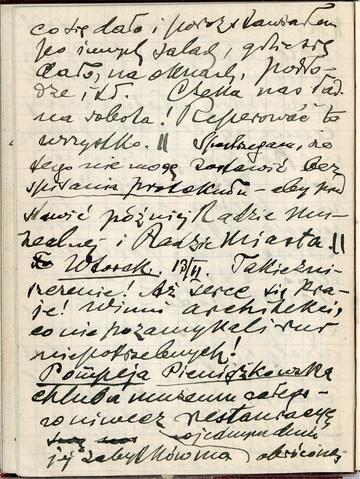 co się dało i porozstawiałem
po innych salach, gdzie się
dało, na oknach, podło-
dze itd. Czeka nas ład-
na robota! Reperować to
wszystko. || Spostrzegam, że
tego nie mogę zostawić bez
spisania protokułu – aby przed
stawić później Radzie mu-
zealnej i Radzie Miasta ||
Wtorek. 13/VI. Takie zni-
szczenie! Aż serce się kra-
je! Winni architekci,
co nie pozamykali rur
niepotrzebnych!
Pompeja Pieniążkowska
chluba muzeum całego
niwecz restauracyę
jej zabytkowna